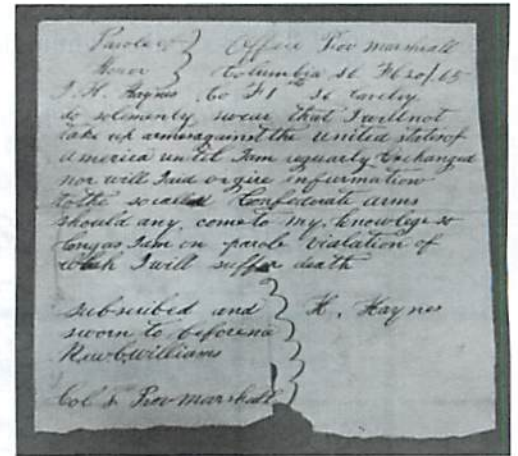 Parole of } Office Prov marshall
Honor } Columbia SC Feb 20/65
I. H. Haynes Co F 1 SC Cavelry
do solemenly swear that I will not
take up armes against the united states of
America until I am reguarly Exchanged
nor will I aid or give infurmation
to the socalled Confederate arms
should any come to my knowlege so
long as I am on parole Violation of
which I will suffer death
subscribed and } H. Haynes
sworn to before me
Williams
Col & Prov marshall